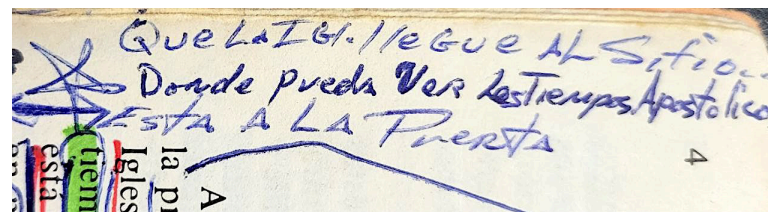 Que La IGl. llegue AL Sitio..
Donde pueda Ver Los Tiempos Apostolico
Esta A LA Puerta
4
A
la pr
Igles
tiem
está